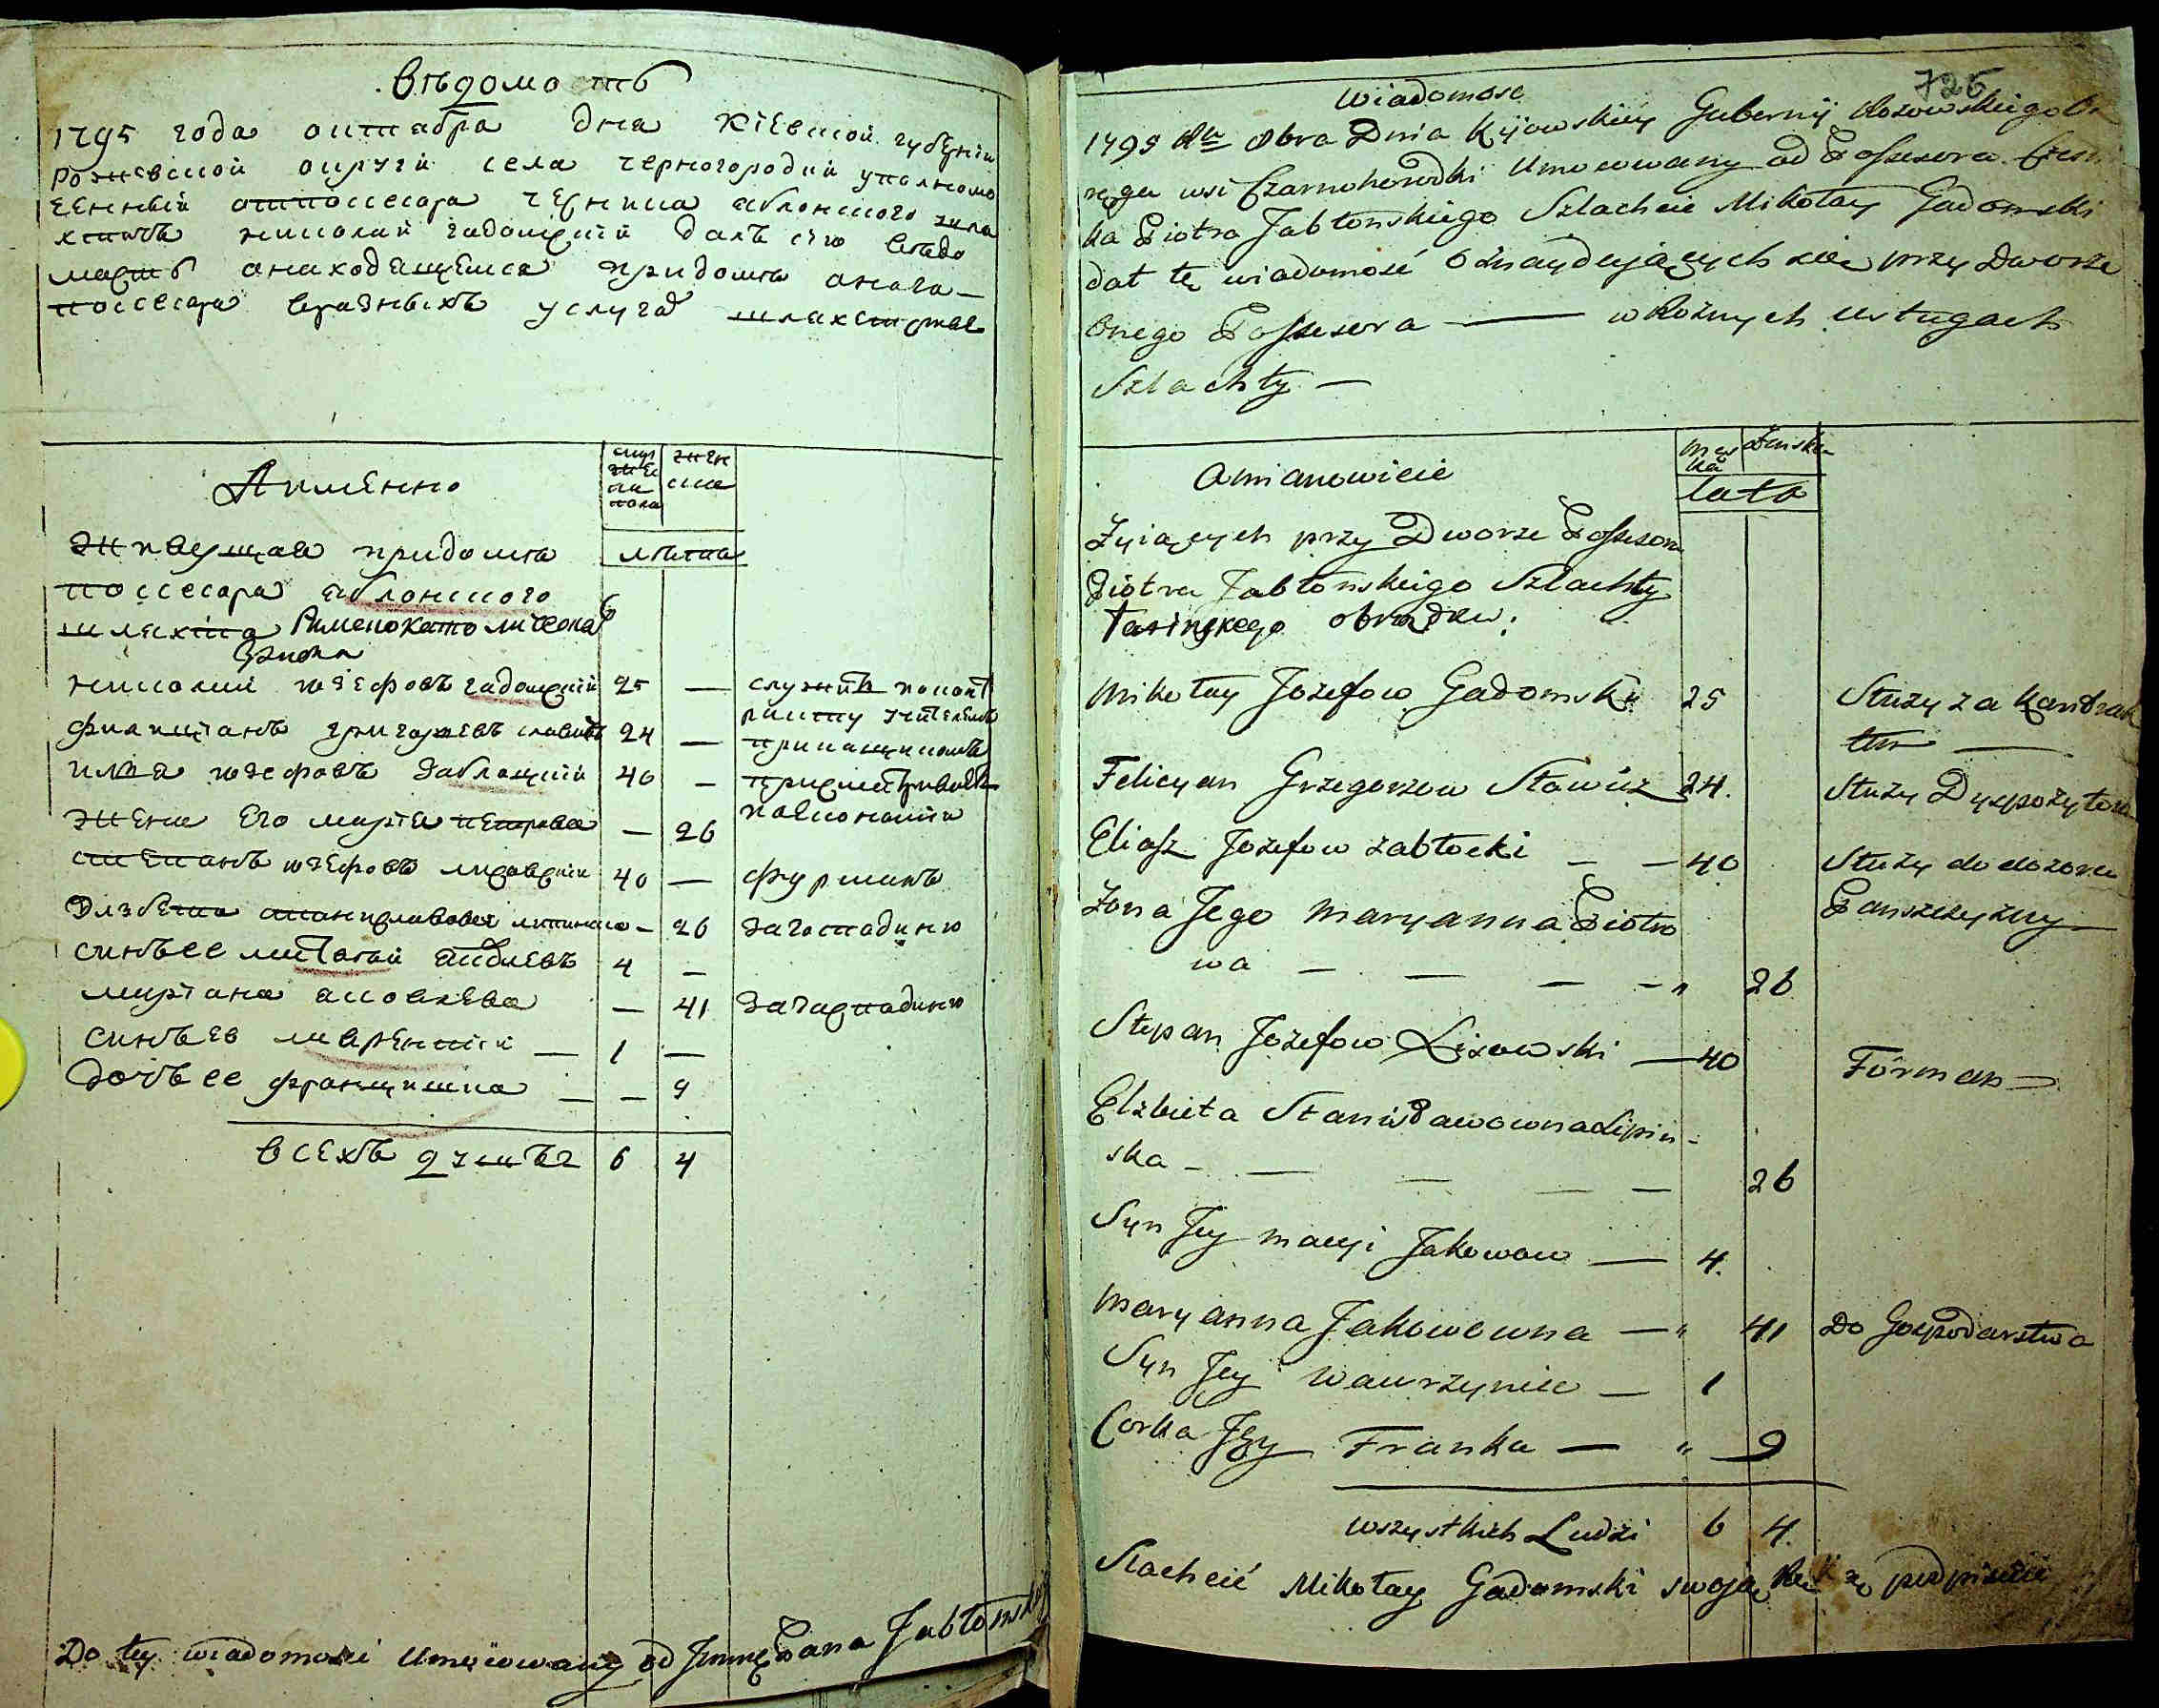 Вѣдомость
1795 года октабра дня Кіевской губерніи
Рожевской округи села Черногородки уполномо
ченный отпоссесора Черника аблонского шла
хтичъ николай гадомский далъ сію вѣдо
мость онаходящемся придомѣ оного —
поссесора вразныхъ услугахъ шляхетства
Аимѣнно
муж
жес
ка
пола
жен
ска
лѣта
Живущая придомѣ
поссесора аблонского
шляхта Римскокатолическа
николай юзефовъ гадомский 25 — служитъ поконт
ракту
филициянъ григоржевъ славичъ 24 —
илия юзефовъ заблоцкий 40 — присматриваетъ
жена его марья петрова — 26
степанъ юзефовъ лисовский 40 — фурманъ
Элзбета станиславова липинска — 26 загосподиню
синъ ее матвей яковлевъ 4 —
марыана яковлева — 41 загосподиню
синъ ев лаврентий — 1 —
дочь ее францишка — — 9
всехъ 6 4
Do tey wiadomości Umocowany od Jmmę Pana Jabłonsky
726
Wiadomosc
1795 Ru 8bra Dnia Kijowskiey Gubernij Rozowskiego Ok
ręga wsi Czarnohorodki Umocowany od Possesora Czesn
ka Piotra Jabłonskiego Szlachcic Mikołay Gadomski
dał tę wiadomość o znayduiących sie przy Dworze
Onego Possesora — w Rożnych usługach
Szlachty —
Amianowicie
Męs
ka
Zenska
Lata
Żyiących przy Dworze Possesora
Piotra Jabłonskiego Szlachty
Łasinskego obrządku:
Mikołay Jozefow Gadomski 25 Służy za Kantrak
tem —
Felicyan Grzegorzow Sławicz 24. Służy Dyspozytora
Eliasz Jozefow Zabłocki — — 40 Służy do dozoru
Panszczyzny
Zona Jego Maryanna Piotro
wa — — — — " 26
Stepan Jozefow Lisowski — 40 Fôrman —
Elzbieta Stanisławowna Lipin-
ska — — — — — 26
Syn Jey Macij Jakowow — 4.
Maryanna Jakowowna — " 41 Do Gospodarstwa
Syn Jey Wawrzyniec — 1
Corka Jey Franka — " 9
Wszystkich Ludzi 6 4.
Slachcić Mikołay Gadomski swoją Ręką podpisuie